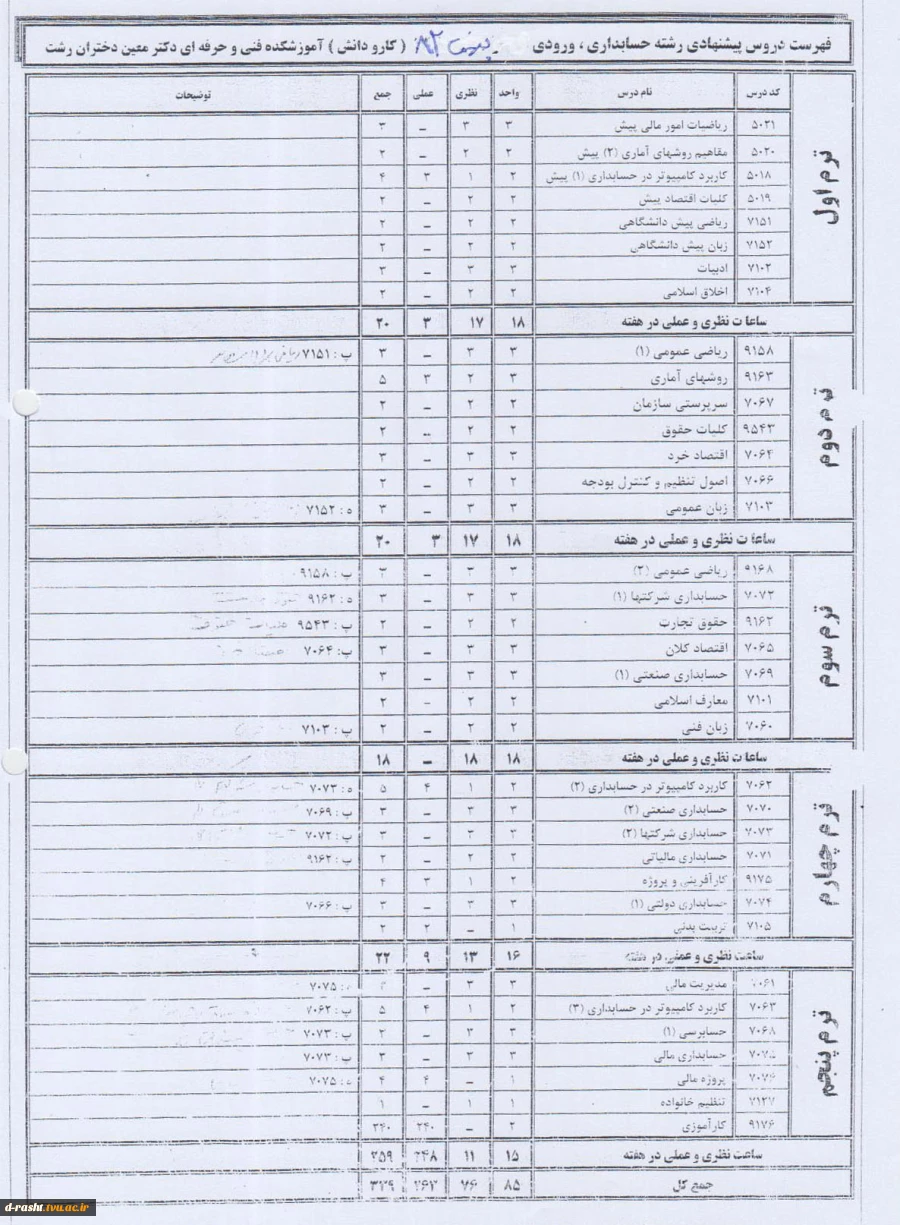 فهرست دروس پیشنهادی رشته حسابداری ، ورودی ۹۲ ( کارو دانش ) آموزشکده فنی و حرفه ای دکتر معین دختران رشت
کد درس نام درس واحد نظری عملی جمع توضیحات
ترم اول
۵۰۲۱ ریاضیات امور مالی پیش ۳ ۳ _ ۳
۵۰۲۰ مقاهیم روشهای آماری (۲) پیش ۲ ۲ _ ۲
۵۰۱۸ کاربرد کامپیوتر در حسابداری (۱) پیش ۲ ۱ ۳ ۴
۵۰۱۹ کلیات اقتصاد پیش ۲ ۲ _ ۲
۷۱۵۱ ریاضی پیش دانشگاهی ۲ ۲ _ ۲
۷۱۵۲ زبان پیش دانشگاهی ۲ ۲ _ ۲
۷۱۰۲ ادبیات ۳ ۳ _ ۳
۷۱۰۴ اخلاق اسلامی ۲ ۲ _ ۲
ساعات نظری و عملی در هفته ۱۸ ۱۷ ۳ ۲۰
ترم دوم
۹۱۵۸ ریاضی عمومی (۱) ۳ ۳ _ ۳ پ : ۷۱۵۱
۹۱۶۳ روشهای آماری ۳ ۲ ۳ ۵
۷۰۶۷ سرپرستی سازمان ۲ ۲ _ ۲
۹۵۴۳ کلیات حقوق ۲ ۲ _ ۲
۷۰۶۴ اقتصاد خرد ۳ ۳ _ ۳
۷۰۶۶ اصول تنظیم و کنترل بودجه ۲ ۲ _ ۲
۷۱۰۳ زبان عمومی ۳ ۳ _ ۳ ه : ۷۱۵۲
ساعات نظری و عملی در هفته ۱۸ ۱۷ ۳ ۲۰
ترم سوم
۹۱۶۸ ریاضی عمومی (۲) ۳ ۳ _ ۳ پ : ۹۱۵۸
۷۰۷۲ حسابداری شرکتها (۱) ۳ ۳ _ ۳ ه : ۹۱۶۲
۹۱۶۲ حقوق تجارت ۲ ۲ _ ۲ پ : ۹۵۴۳
۷۰۶۵ اقتصاد کلان ۳ ۳ _ ۳ پ : ۷۰۶۴
۷۰۶۹ حسابداری صنعتی (۱) ۳ ۳ _ ۳
۷۱۰۱ معارف اسلامی ۲ ۲ - ۲
۷۰۶۰ زبان فنی ۲ ۲ _ ۲ پ : ۷۱۰۳
ساعات نظری و عملی در هفته ۱۸ ۱۸ _ ۱۸
ترم چهارم
۷۰۶۲ کاربرد کامپیوتر در حسابداری (۲) ۲ ۱ ۴ ۵ ه : ۷۰۷۳
۷۰۷۰ حسابداری صنعتی (۲) ۳ ۳ _ ۳ پ : ۷۰۶۹
۷۰۷۳ حسابداری شرکتها (۲) ۳ ۳ _ ۳ پ : ۷۰۷۲
۷۰۷۱ حسابداری مالیاتی ۲ ۲ _ ۲ پ : ۹۱۶۲
۹۱۷۵ کارآفرینی و پروژه ۲ ۱ ۳ ۴
۷۰۷۴ حسابداری دولتی (۱) ۳ ۳ _ ۳ پ : ۷۰۶۶
۷۱۰۵ تربیت بدنی ۱ _ ۲ ۲
ساعت نظری و عملی در هفته ۱۶ ۱۳ ۹ ۲۲
ترم پنجم
۷۰۶۱ مدیریت مالی ۳ ۳ _ ۳ ه : ۷۰۷۵
۷۰۶۳ کاربرد کامپیوتر در حسابداری (۳) ۲ ۱ ۴ ۵ پ : ۷۰۶۲
۷۰۶۸ حسابرسی (۱) ۳ ۳ _ ۳ پ : ۷۰۷۳
۷۰۷۵ حسابداری مالی ۳ ۳ _ ۳ پ : ۷۰۷۳
۷۰۷۶ پروژه مالی ۱ _ ۴ ۴ ه : ۷۰۷۵
۷۱۲۷ تنظیم خانواده ۱ ۱ _ ۱
۹۱۷۶ کارآموزی ۲ _ ۲۴۰ ۲۴۰
ساعت نظری و عملی در هفته ۱۵ ۱۱ ۲۴۸ ۲۵۹
جمع کل ۸۵ ۷۶ ۲۶۳ ۳۳۹
d-rasht.tvu.ac.ir